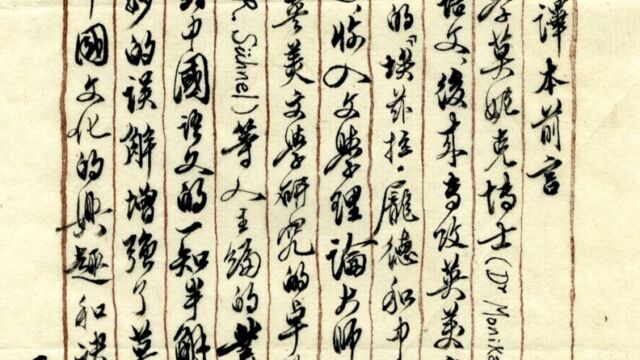 譯本前言
莫妮克博士(Dr Monika
語文、後來專攻英美
的『埃茲拉·龐德和中
收入文學理論大師
英美文學研究的卓
R. Sühnel)等人主編的
中國語文的一知半解
妙的誤解增強了莫
中國文化的興趣和